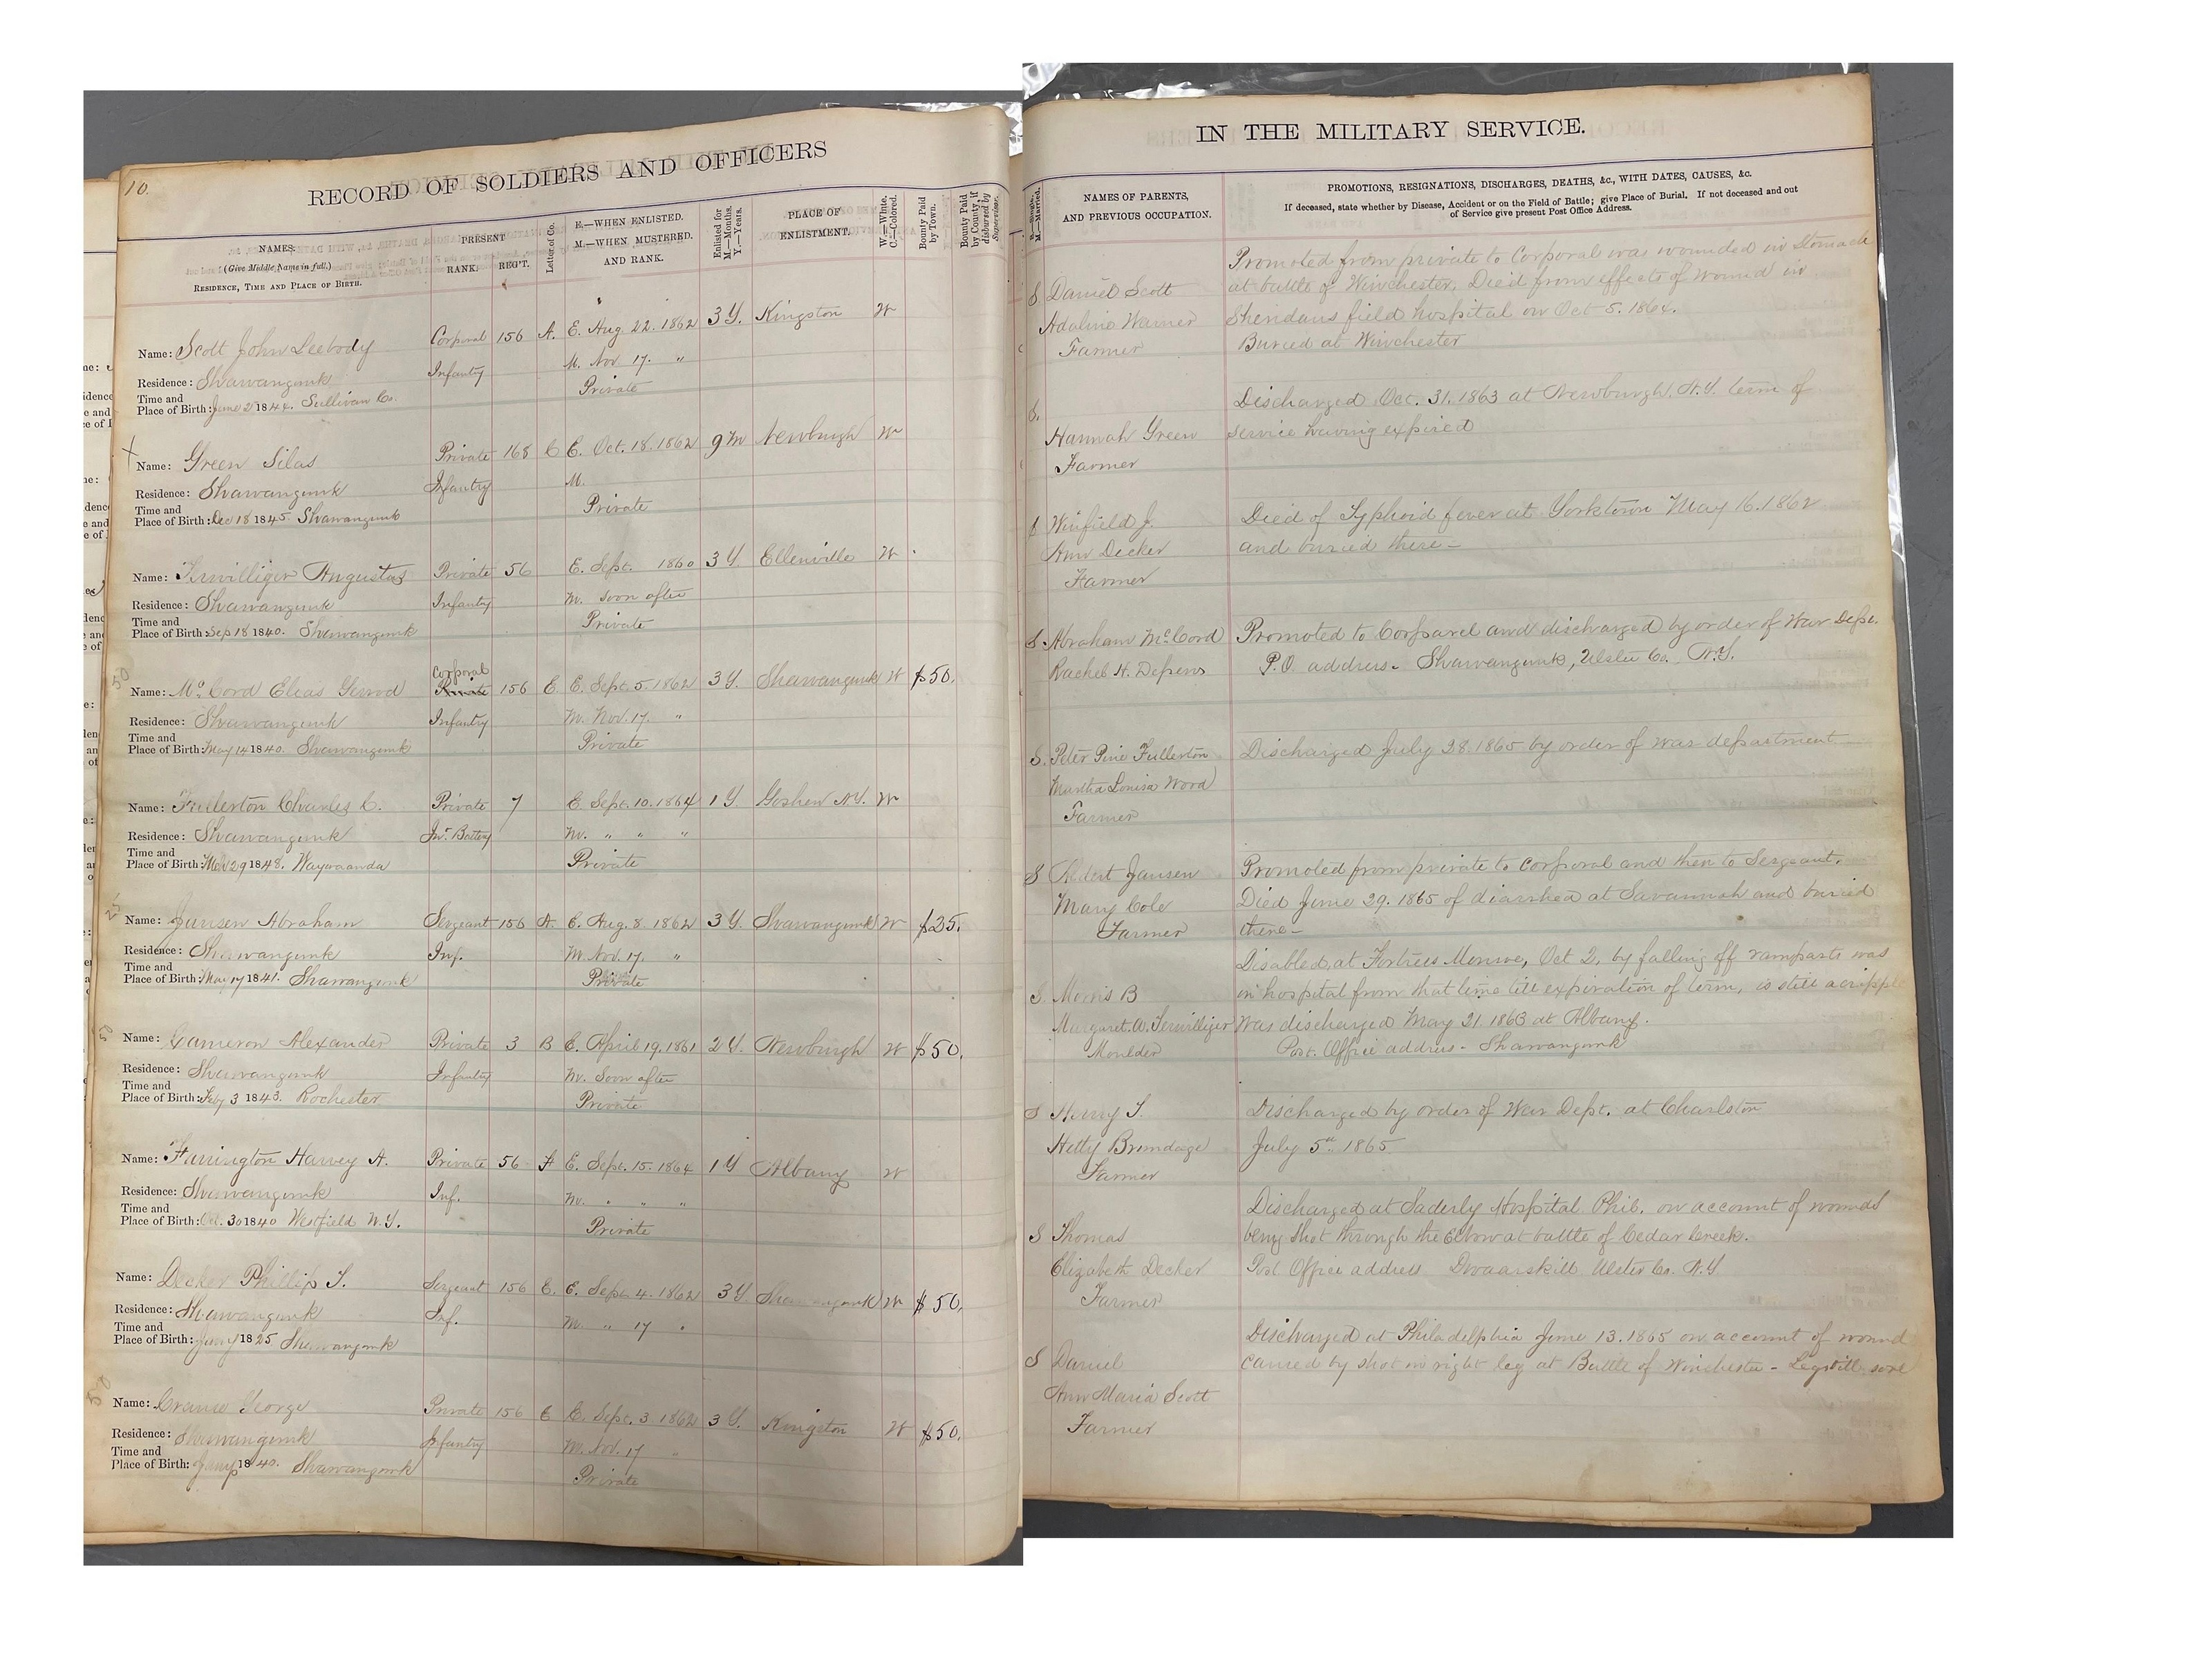 10.
RECORD OF SOLDIERS AND OFFICERS
NAMES:
(Give Middle Name in full.)
RESIDENCE, TIME AND PLACE OF BIRTH.
PRESENT
RANK. REG'T.
Letter of Co.
E.—WHEN ENLISTED.
M.—WHEN MUSTERED.
AND RANK.
Enlisted for
M.—Months.
Y.—Years.
PLACE OF
ENLISTMENT.
W.—White.
C.—Colored.
Bounty Paid
by Town.
Bounty Paid
by County, if
disbursed by
Supervisor.
Name: Scott John Corporal 156 A. E. Aug. 22. 1862 3 Y. Kingston W
Infantry M. Nov 17. "
Residence: Shawangunk Private
Time and
Place of Birth: June 2 1844. Sullivan Co.
Name: Green Silas Private 168 C E. Oct. 18. 1862 9 M Newburgh W
Residence: Shawangunk Infantry M.
Time and Private
Place of Birth: Dec 18 1845. Shawangunk
Name: Terwilliger Augustus Private 56 E. Sept. 1860 3 Y. Ellenville W
Residence: Shawangunk Infantry M. soon after
Time and Private
Place of Birth: Sep 18 1840. Shawangunk
50
Corporal
Name: Mc Cord Elias Private 156 E. E. Sept. 5. 1862 3 Y. Shawangunk W $50.
Residence: Shawangunk Infantry M. Nov. 17. "
Time and Private
Place of Birth: May 14 1840. Shawangunk
Name: Fullerton Charles C. Private 7 E. Sept. 10. 1864 1 Y Goshen N.Y. W
Residence: Shawangunk Int. Battery M. " " "
Time and Private
Place of Birth: 29 1848. Waywaanda
25
Name: Jansen Abraham Sergeant 156 A. E. Aug. 8. 1862 3 Y Shawangunk W $25.
Residence: Shawangunk Inf. M. Nov. 17. "
Time and Private
Place of Birth: May 17 1841. Shawangunk
50
Name: Cameron Alexander Private 3 B E. April 19. 1861 2 Y. Newburgh W $50.
Residence: Shawangunk Infantry M. Soon after
Time and Private
Place of Birth: Feby 3 1843. Rochester
Name: Farrington Harvey A. Private 56 A E. Sept. 15. 1864 1 Y Albany W
Residence: Shawangunk Inf. M. " " "
Time and Private
Place of Birth: Oct. 30 1840 Westfield N.Y.
Name: Decker Phillip T. Sergeant 156 E. E. Sept. 4. 1862 3 Y Shawangunk W $50.
Residence: Shawangunk Inf. M. " 17 "
Time and
Place of Birth: 1825 Shawangunk
50
Name: Crause George Private 156 E E. Sept. 3 1862 3 Y. Kingston W $50.
Residence: Shawangunk Infantry M. Nov. 17 "
Time and Private
Place of Birth: 1840. Shawangunk
IN THE MILITARY SERVICE.
S.—Single.
M.—Married.
NAMES OF PARENTS,
AND PREVIOUS OCCUPATION.
PROMOTIONS, RESIGNATIONS, DISCHARGES, DEATHS, &c., WITH DATES, CAUSES, &c.
If deceased, state whether by Disease, Accident or on the Field of Battle; give Place of Burial. If not deceased and out
of Service give present Post Office Address.
Promoted from private to Corporal was wounded in Stomach
S Daniel Scott at battle of Winchester, Died from effects of wound in
Adaline Warner Sheridans field hospital on Oct 5. 1864.
Farmer Buried at Winchester
S. Discharged Oct. 31. 1863 at Newburgh, N.Y. term of
Hannah Green service having expired
Farmer
S Winfield J. Died of Typhoid fever at Yorktown May 16. 1862
Ann Decker and buried there —
Farmer
S Abraham McCord Promoted to Corparel and discharged by order of War Dept.
Rachel H. P.O. address. Shawangunk, Ulster Co., N.Y.
S. Peter Pine Fullerton Discharged July 28. 1865 by order of war department
Martha Louisa Wood
Farmer
S Jansen Promoted from private to corporal and then to Sergeant.
Mary Cole Died June 29. 1865 of diarrhea at Savannah and buried
Farmer there —
Disabled, at Fortress Monroe, Oct 2, by falling off ramparts was
S Morris B in hospital from that time till expiration of term, is still a cripple
Margaret. A. Terwilliger Was discharged May 21. 1863 at Albany.
Moulder Post. Office address - Shawangunk
S Henry S. Discharged by order of War Dept. at Charlston
Hetty Brundage July 5th 1865
Farmer
Discharged at Saderly Hospital. Phil. on account of wounds
S Thomas being shot through the Elbow at battle of Cedar Creek.
Elizabeth Decker Post. Office address Dwaarskill Ulster Co. N.Y.
Farmer
Discharged at Philadelphia June 13. 1865 on account of wound
S Daniel caused by shot in right leg at Battle of Winchester - Leg still sore
Ann Maria Scott
Farmer